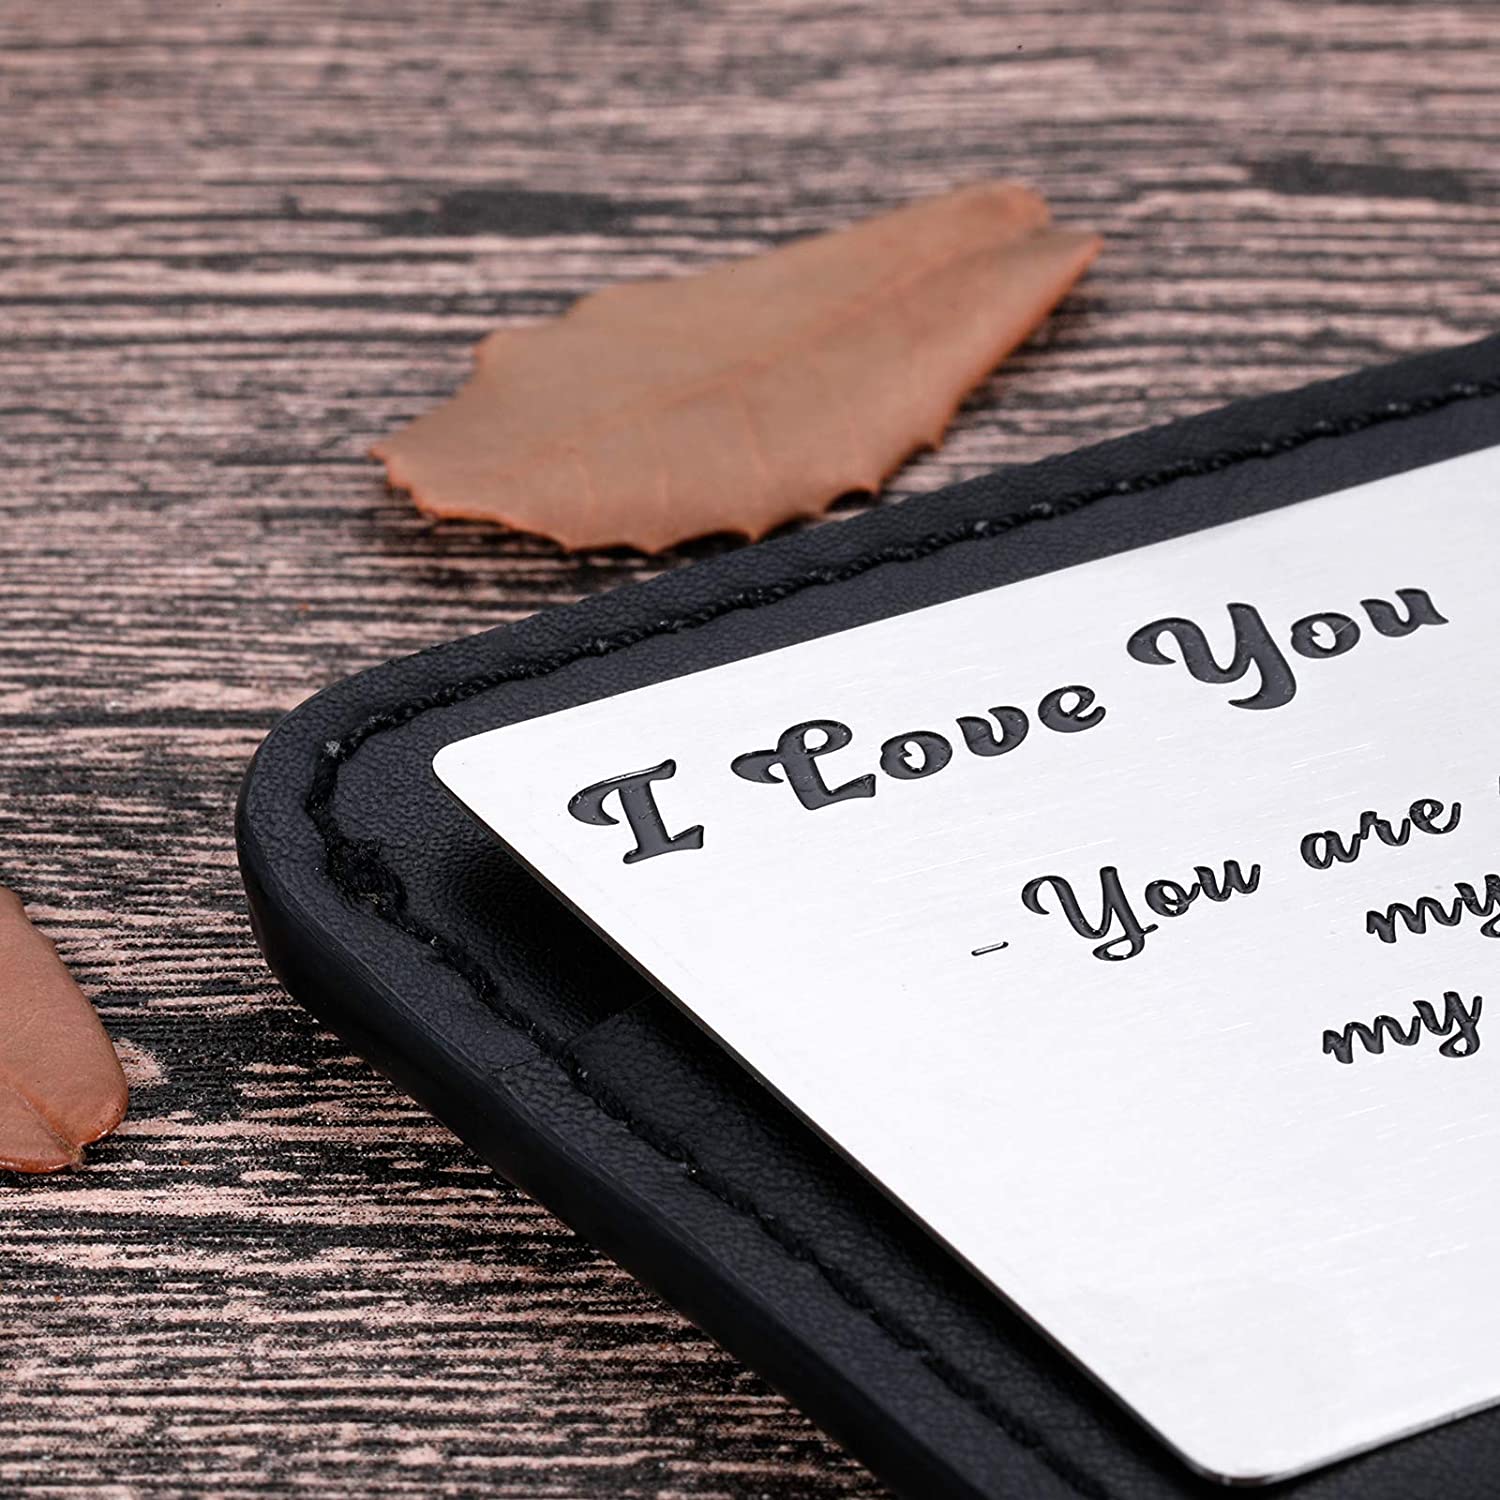 I Love You
- You are
my
my